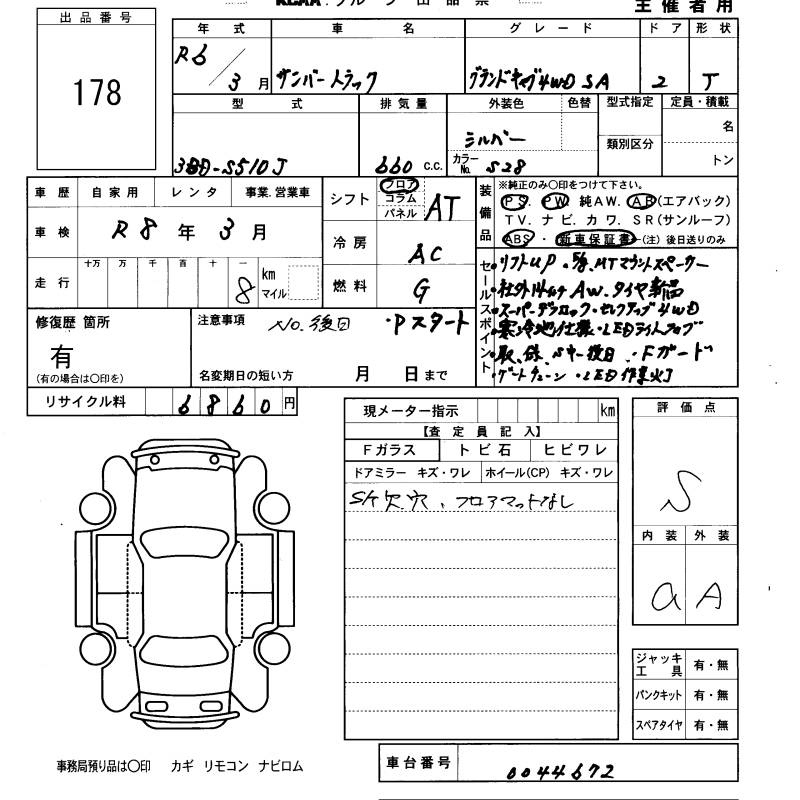 KCAA グループ 出品票
主催者用
出品番号
178
年式 車名 グレード ドア 形状
R6/3月 サンバートラック グランドキャブ4WD SA 2 T
型式 排気量 外装色 色替 型式指定 定員・積載
類別区分 名
3BD-S510J 660 c.c. シルバー カラーNo. S28 トン
車歴 自家用 レンタ 事業.営業車
車検 R8年3月
走行 十万 万 千 百 十 一 8 km マイル
シフト フロア コラム パネル AT
冷房 AC
燃料 G
装備品
※純正のみ○印をつけて下さい。
PS. PW 純AW. AB(エアバック)
TV. ナビ. カワ. SR(サンルーフ)
ABS・新車保証書(注)後日送りのみ
セールスポイント
・リフトUP
・MTマウントスペーサー
・社外14インチAW.タイヤ新品
・スーパーデフロック・セレクティブ4WD
・寒冷地仕様・LEDライトフォグ
・取.保.Sキー後日・Fガード
・ゲートチェーン・LED作業灯
修復歴 箇所
有
(有の場合は○印を)
注意事項 No.後日 ・Pスタート
名変期日の短い方 月 日まで
リサイクル料 6860円
現メーター指示 km
【査定員記入】
Fガラス トビ石 ヒビワレ
ドアミラー キズ・ワレ ホイール(CP) キズ・ワレ
S欠穴、フロアマットなし
評価点
S
内装 外装
a A
ジャッキ工具 有・無
パンクキット 有・無
スペアタイヤ 有・無
事務局預り品は○印 カギ リモコン ナビロム
車台番号 0044672